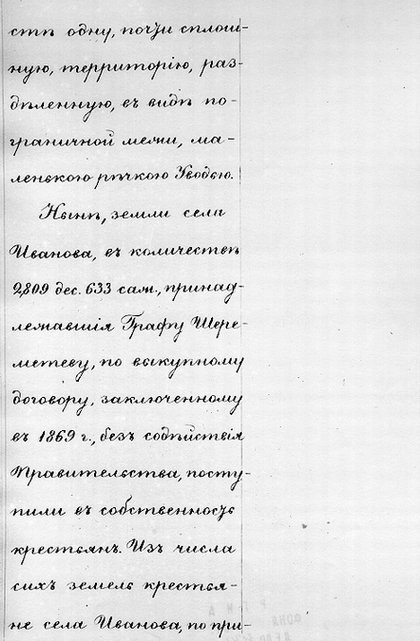 стѣ одну, почти сплош-
ную, территорію, раз-
дѣленную, въ видѣ по-
граничной межи, ма-
ленькою рѣчкою Уводью.
Нынѣ, земли села
Иванова, въ количествѣ
2,809 дес. 633 саж., принад-
лежавшія Графу Шере-
метеву, по выкупному
договору, заключенному
въ 1869 г., безъ содѣйствія
Правительства, посту-
пили въ собственность
крестьянъ. Изъ числа
сихъ земель крестья-
не села Иванова, по при-